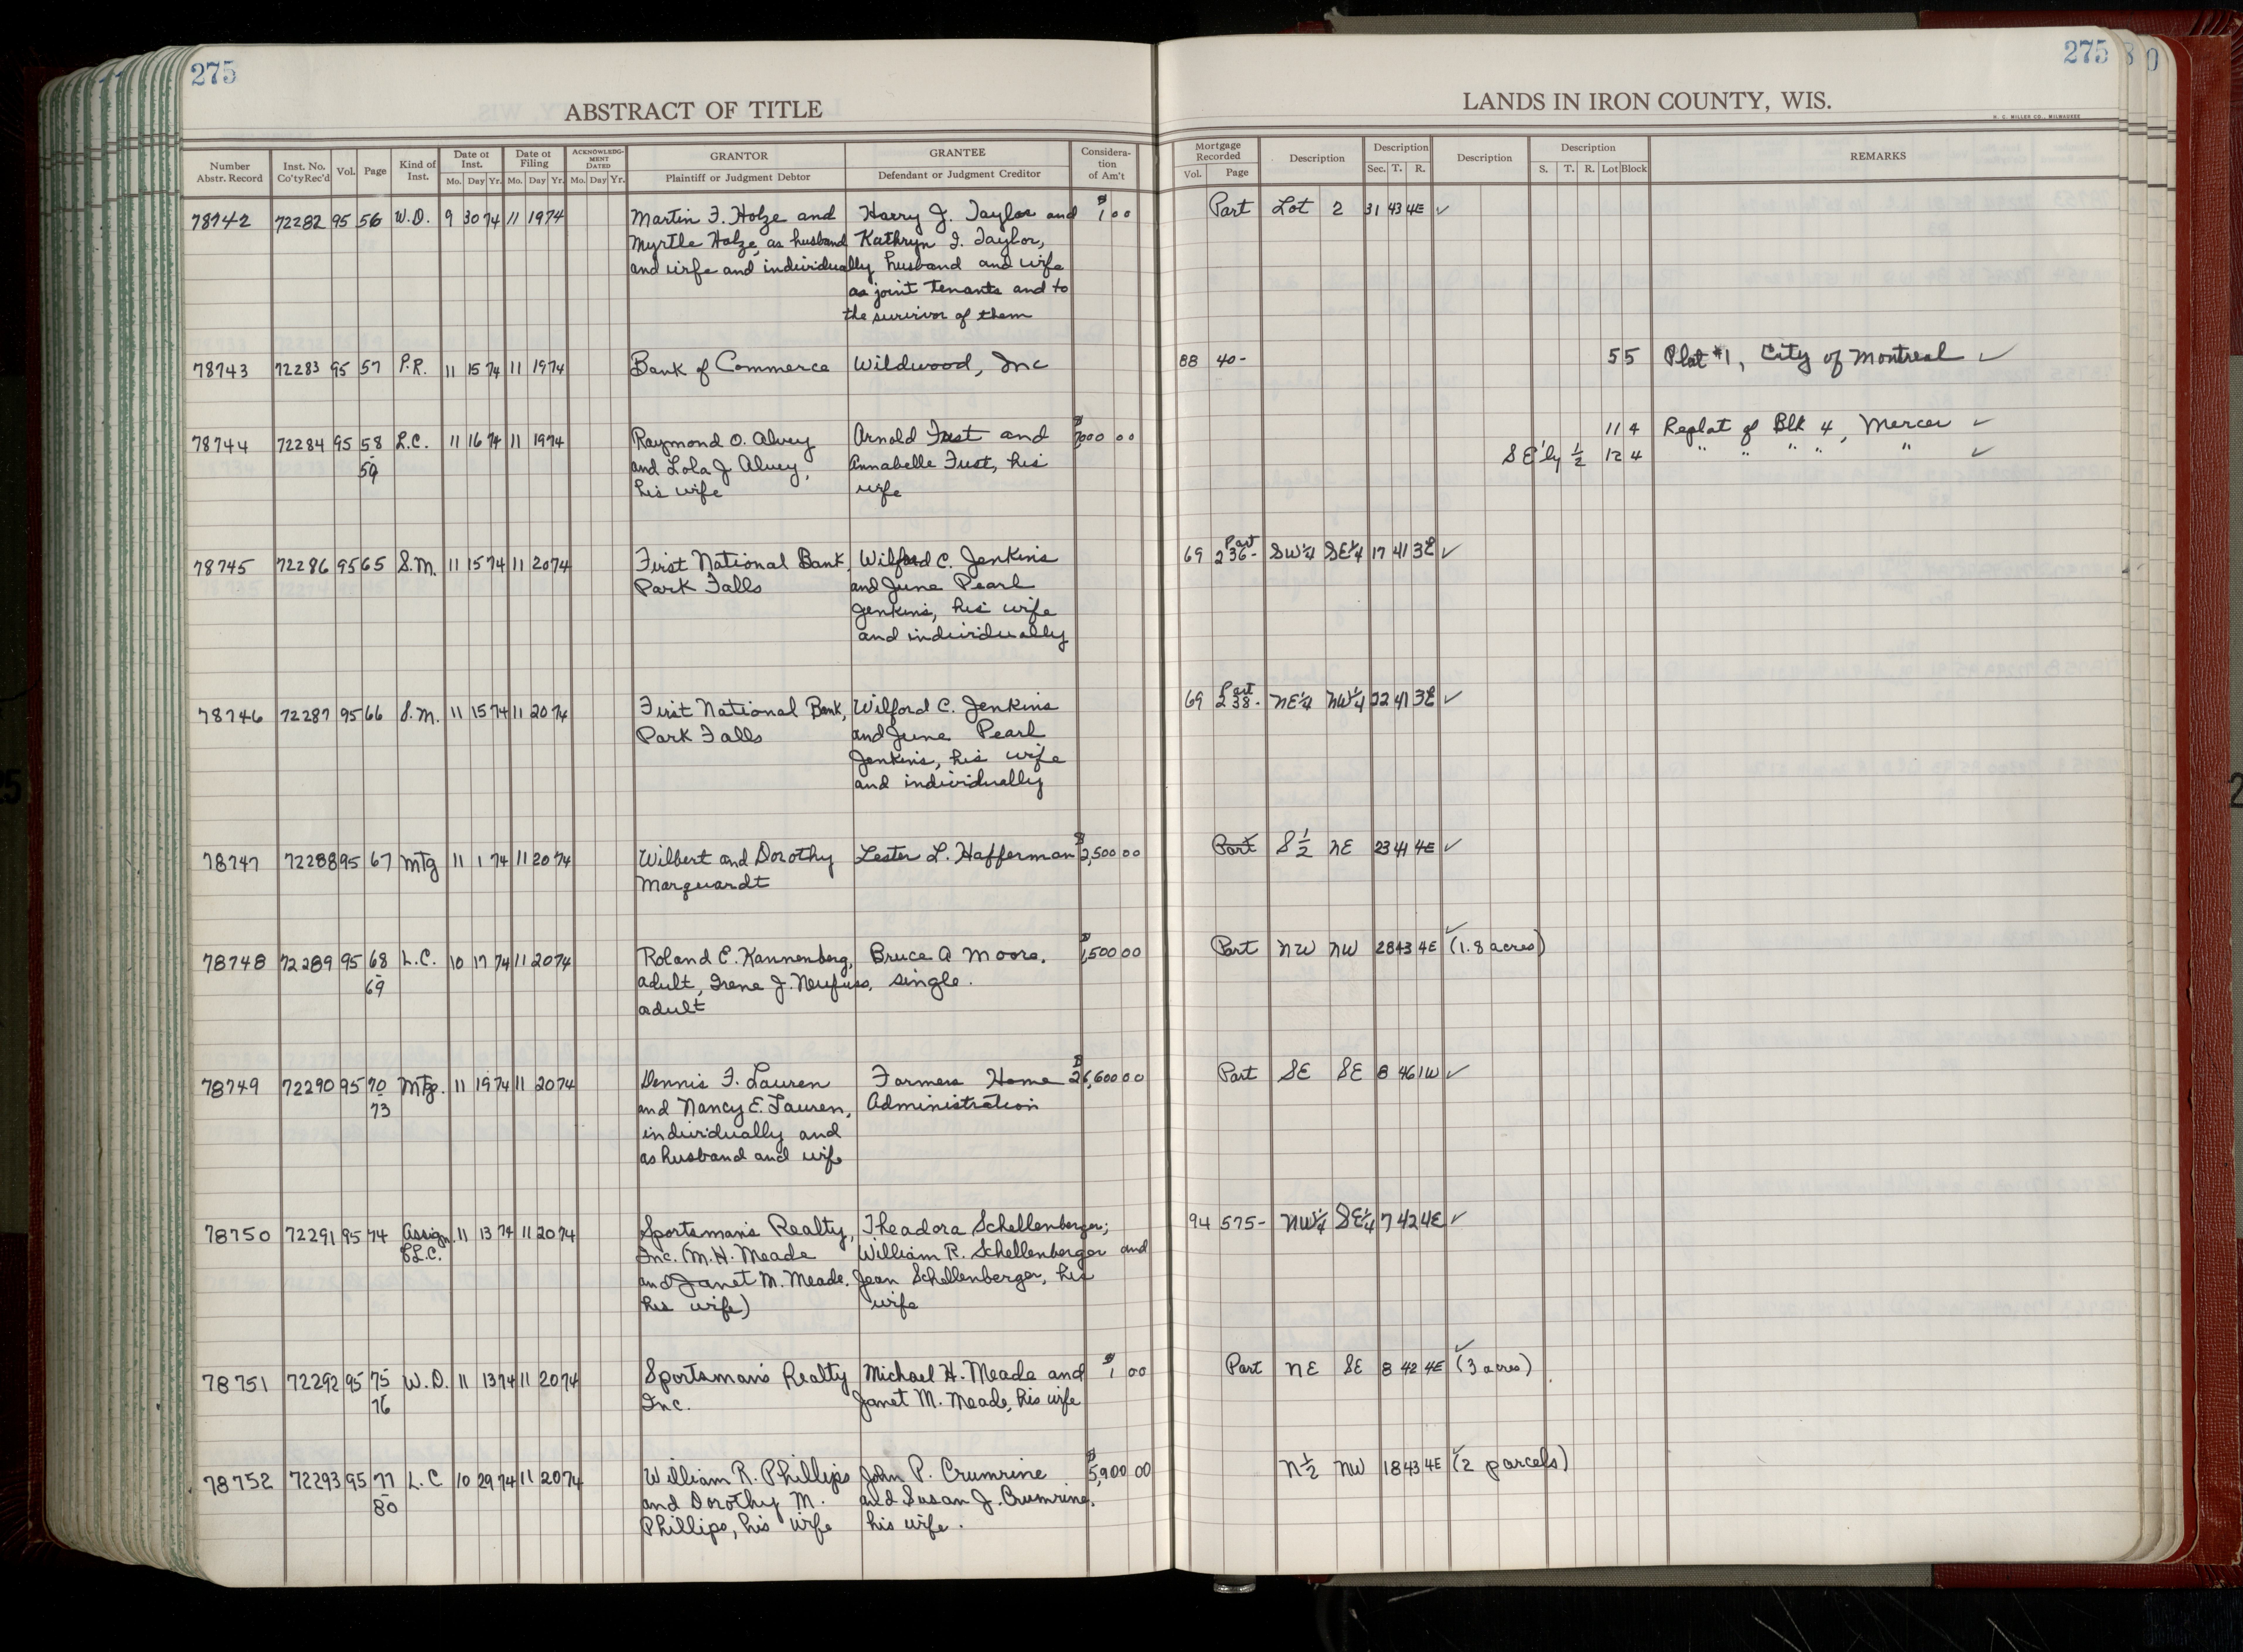 275
ABSTRACT OF TITLE
275
LANDS IN IRON COUNTY, WIS.
H. C. MILLER CO., MILWAUKEE
Number Abstr. Record | Inst. No. Co'ty Rec'd | Vol. | Page | Kind of Inst. | Date of Inst. Mo. Day Yr. | Date of Filing Mo. Day Yr. | ACKNOWLEDGMENT DATED Mo. Day Yr. | GRANTOR Plaintiff or Judgment Debtor | GRANTEE Defendant or Judgment Creditor | Consideration of Am't | Mortgage Recorded Vol. Page | Description | Description Sec. T. R. | Description | Description S. T. R. Lot Block | REMARKS
78742 72282 95 56 W.D. 9 30 74 11 19 74 Martin F. Holze and Harry J. Taylor and $1 00 Part Lot 2 31 43 4E ✓
Myrtle Holze, as husband Kathryn I. Taylor,
and wife and individually husband and wife
as joint tenants and to
the survivor of them
78743 72283 95 57 P.R. 11 15 74 11 19 74 Bank of Commerce Wildwood, Inc 88 40- 5 5 Plat #1, City of Montreal ✓
78744 72284 95 58 L.C. 11 16 74 11 19 74 Raymond O. Alvey Arnold Fust and 00 11 4 Replat of Blk 4, Mercer ✓
- 59 and Lola J Alvey, Annabelle Fust, his SE'ly ½ 12 4 " " " " " ✓
his wife wife
78745 72286 95 65 S.M. 11 15 74 11 20 74 First National Bank, Wilford C. Jenkins 69 Part 236- SW¼ SE¼ 17 41 3E ✓
Park Falls and June Pearl
Jenkins, his wife
and individually
78746 72287 95 66 S.M. 11 15 74 11 20 74 First National Bank, Wilford C. Jenkins 69 Part 238- NE¼ NW¼ 22 41 3E ✓
Park Falls and June Pearl
Jenkins, his wife
and individually
78747 72288 95 67 Mtg 11 1 74 11 20 74 Wilbert and Dorothy Lester L. Hafferman $2,500 00 Part S½ NE 23 41 4E ✓
Marquardt
78748 72289 95 68 L.C. 10 17 74 11 20 74 Roland E. Kannenberg, Bruce A Moore, $1,500 00 Part NW NW 28 43 4E ✓ (1.8 acres)
- 69 adult, Irene J. Neufuss, single.
adult
78749 72290 95 70 Mtg. 11 19 74 11 20 74 Dennis F. Lauren Farmers Home $26,600 00 Part SE SE 8 46 1W ✓
- 73 and Nancy E. Lauren, Administration
individually and
as husband and wife
78750 72291 95 74 Assign. 11 13 74 11 20 74 Sportsman's Realty, Theadora Schellenberger; 94 575- NW¼ SE¼ 7 42 4E ✓
L.C. Inc. (M.H. Meade William R. Schellenberger and
and Janet M. Meade, Jean Schellenberger, his
his wife) wife
78751 72292 95 75 W.D. 11 13 74 11 20 74 Sportsman's Realty Michael H. Meade and $1 00 Part NE SE 8 42 4E ✓ (3 acres)
- 76 Inc. Janet M. Meade, his wife
78752 72293 95 77 L.C 10 29 74 11 20 74 William R. Phillips John P. Crumrine $5,900 00 N½ NW 18 43 4E ✓ (2 parcels)
- 80 and Dorothy M. and Susan J. Crumrine,
Phillips, his wife his wife.